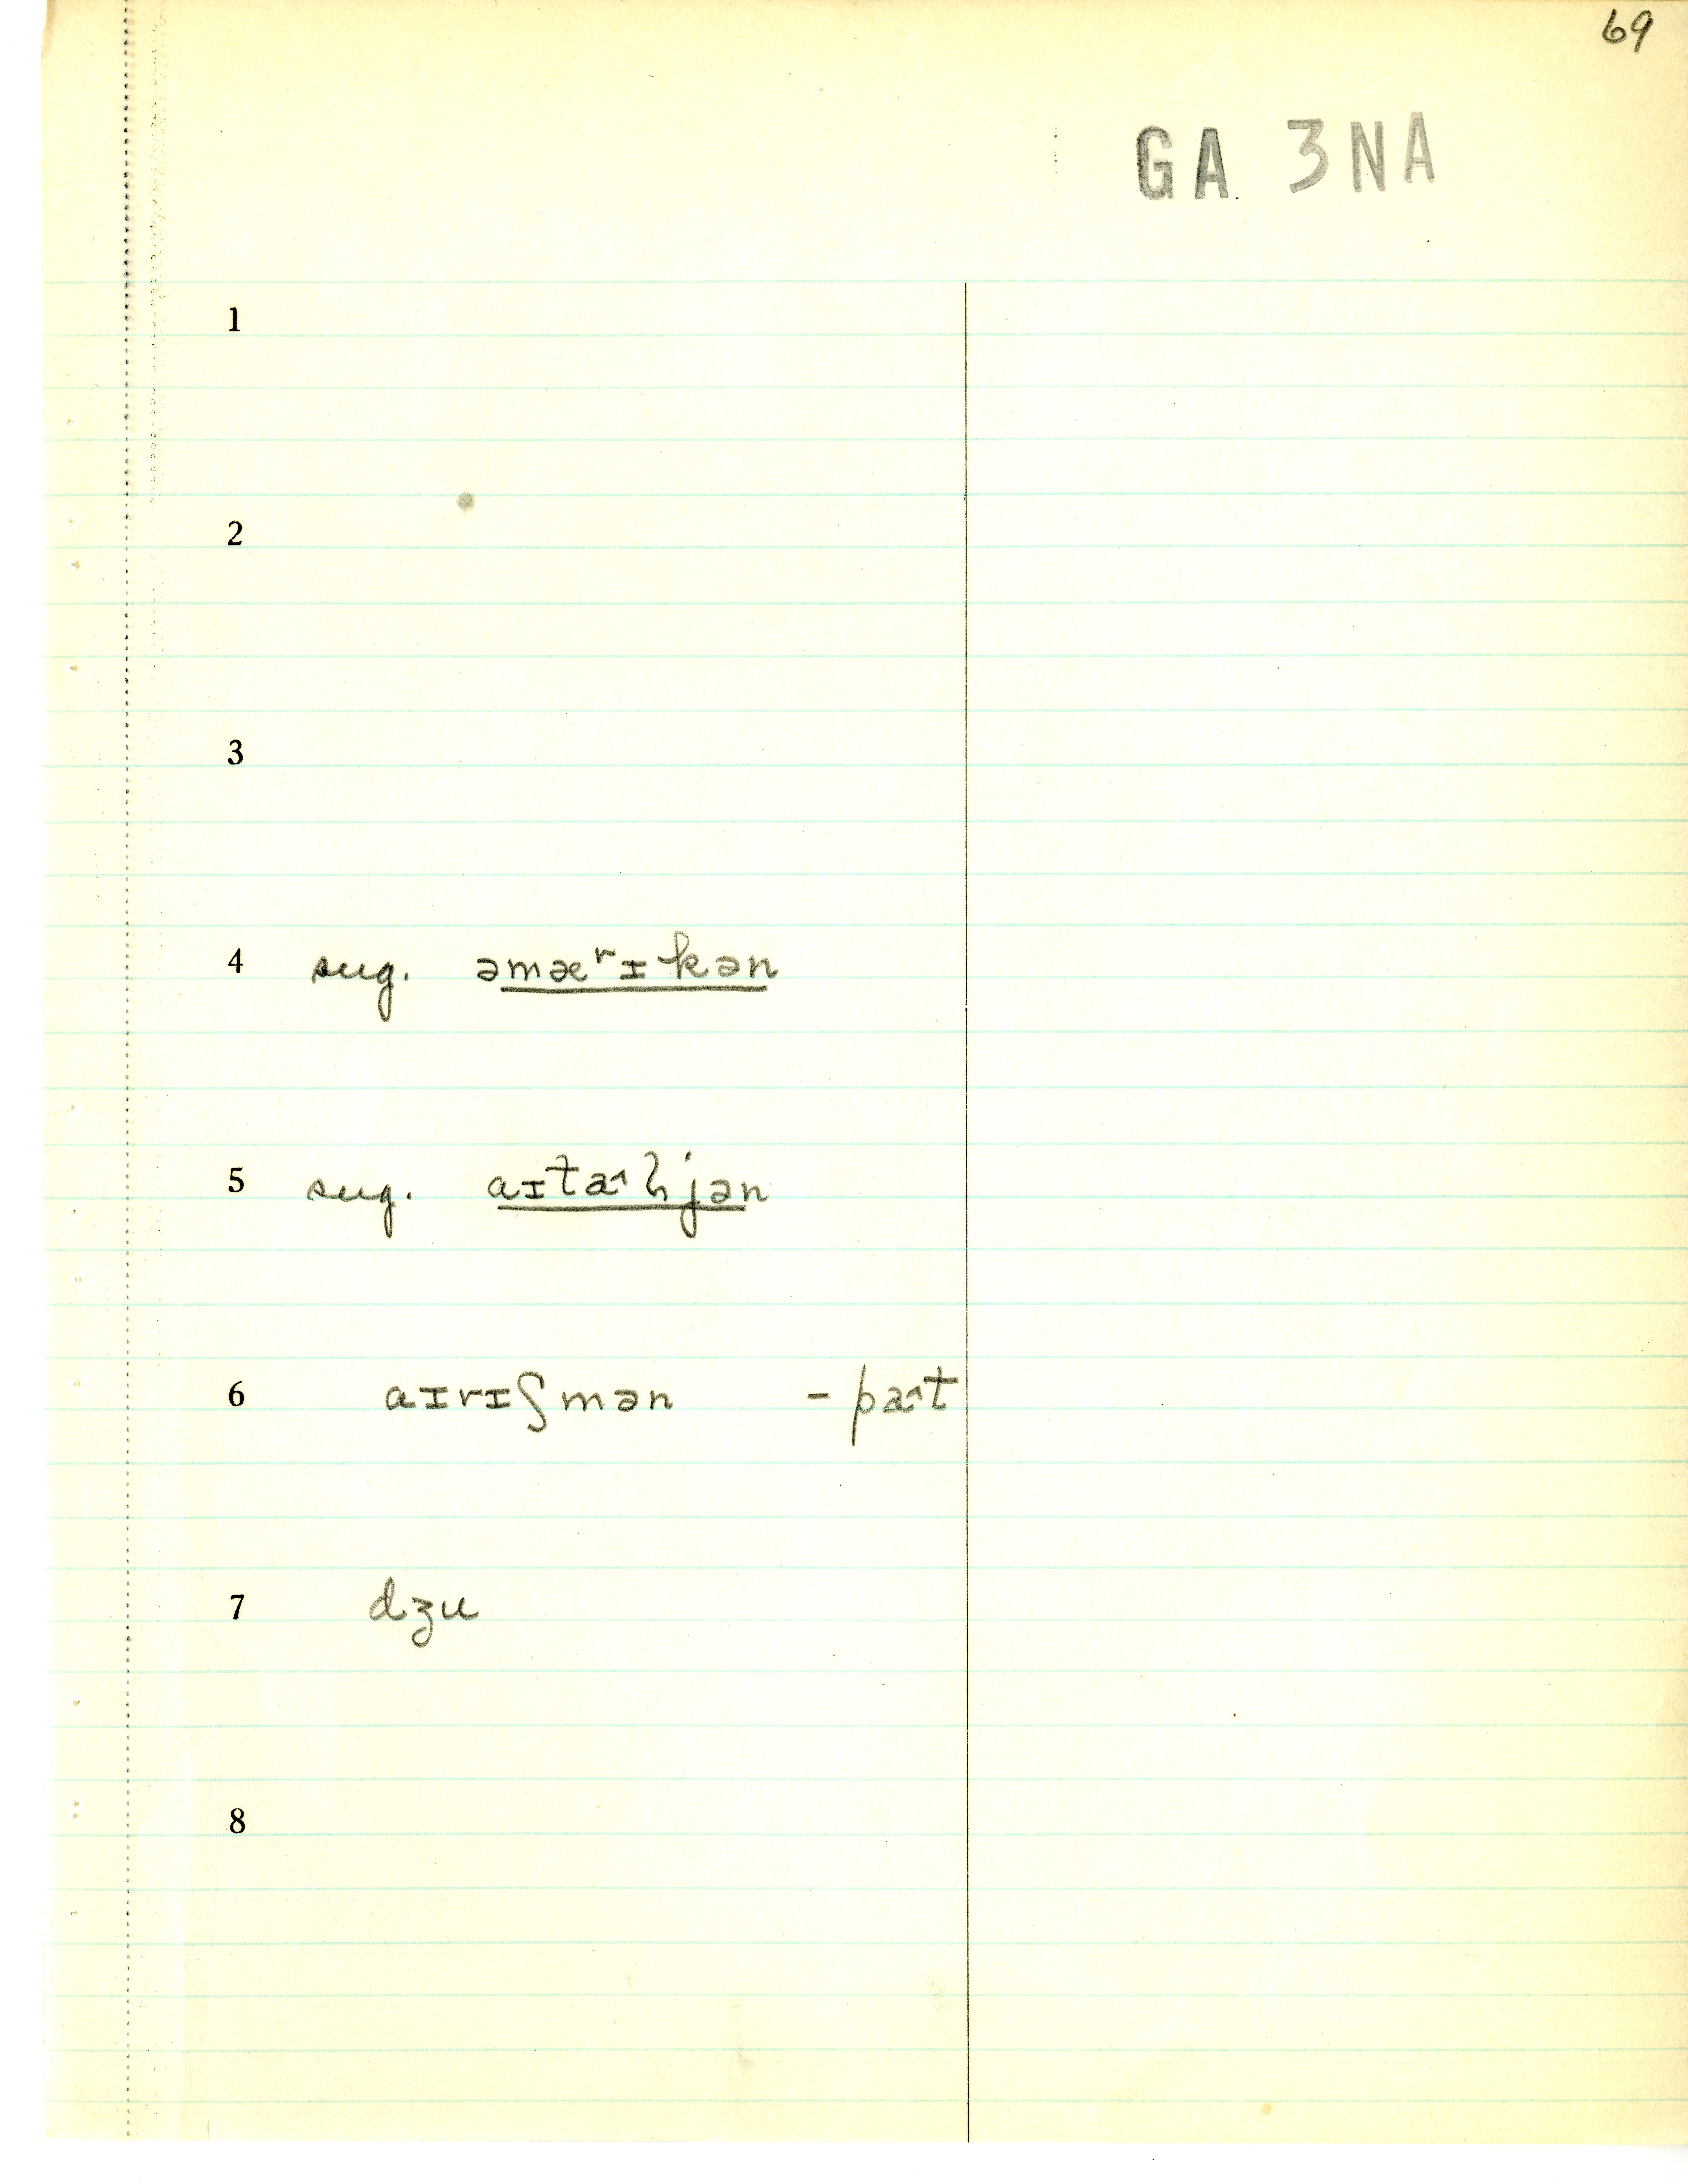 69
GA 3NA
1
2
3
4 sug. əmæʳɪkən
5 sug. aɪta˄ljən
6 aɪrɪʃmən - pa˄t
7 dʒu
8